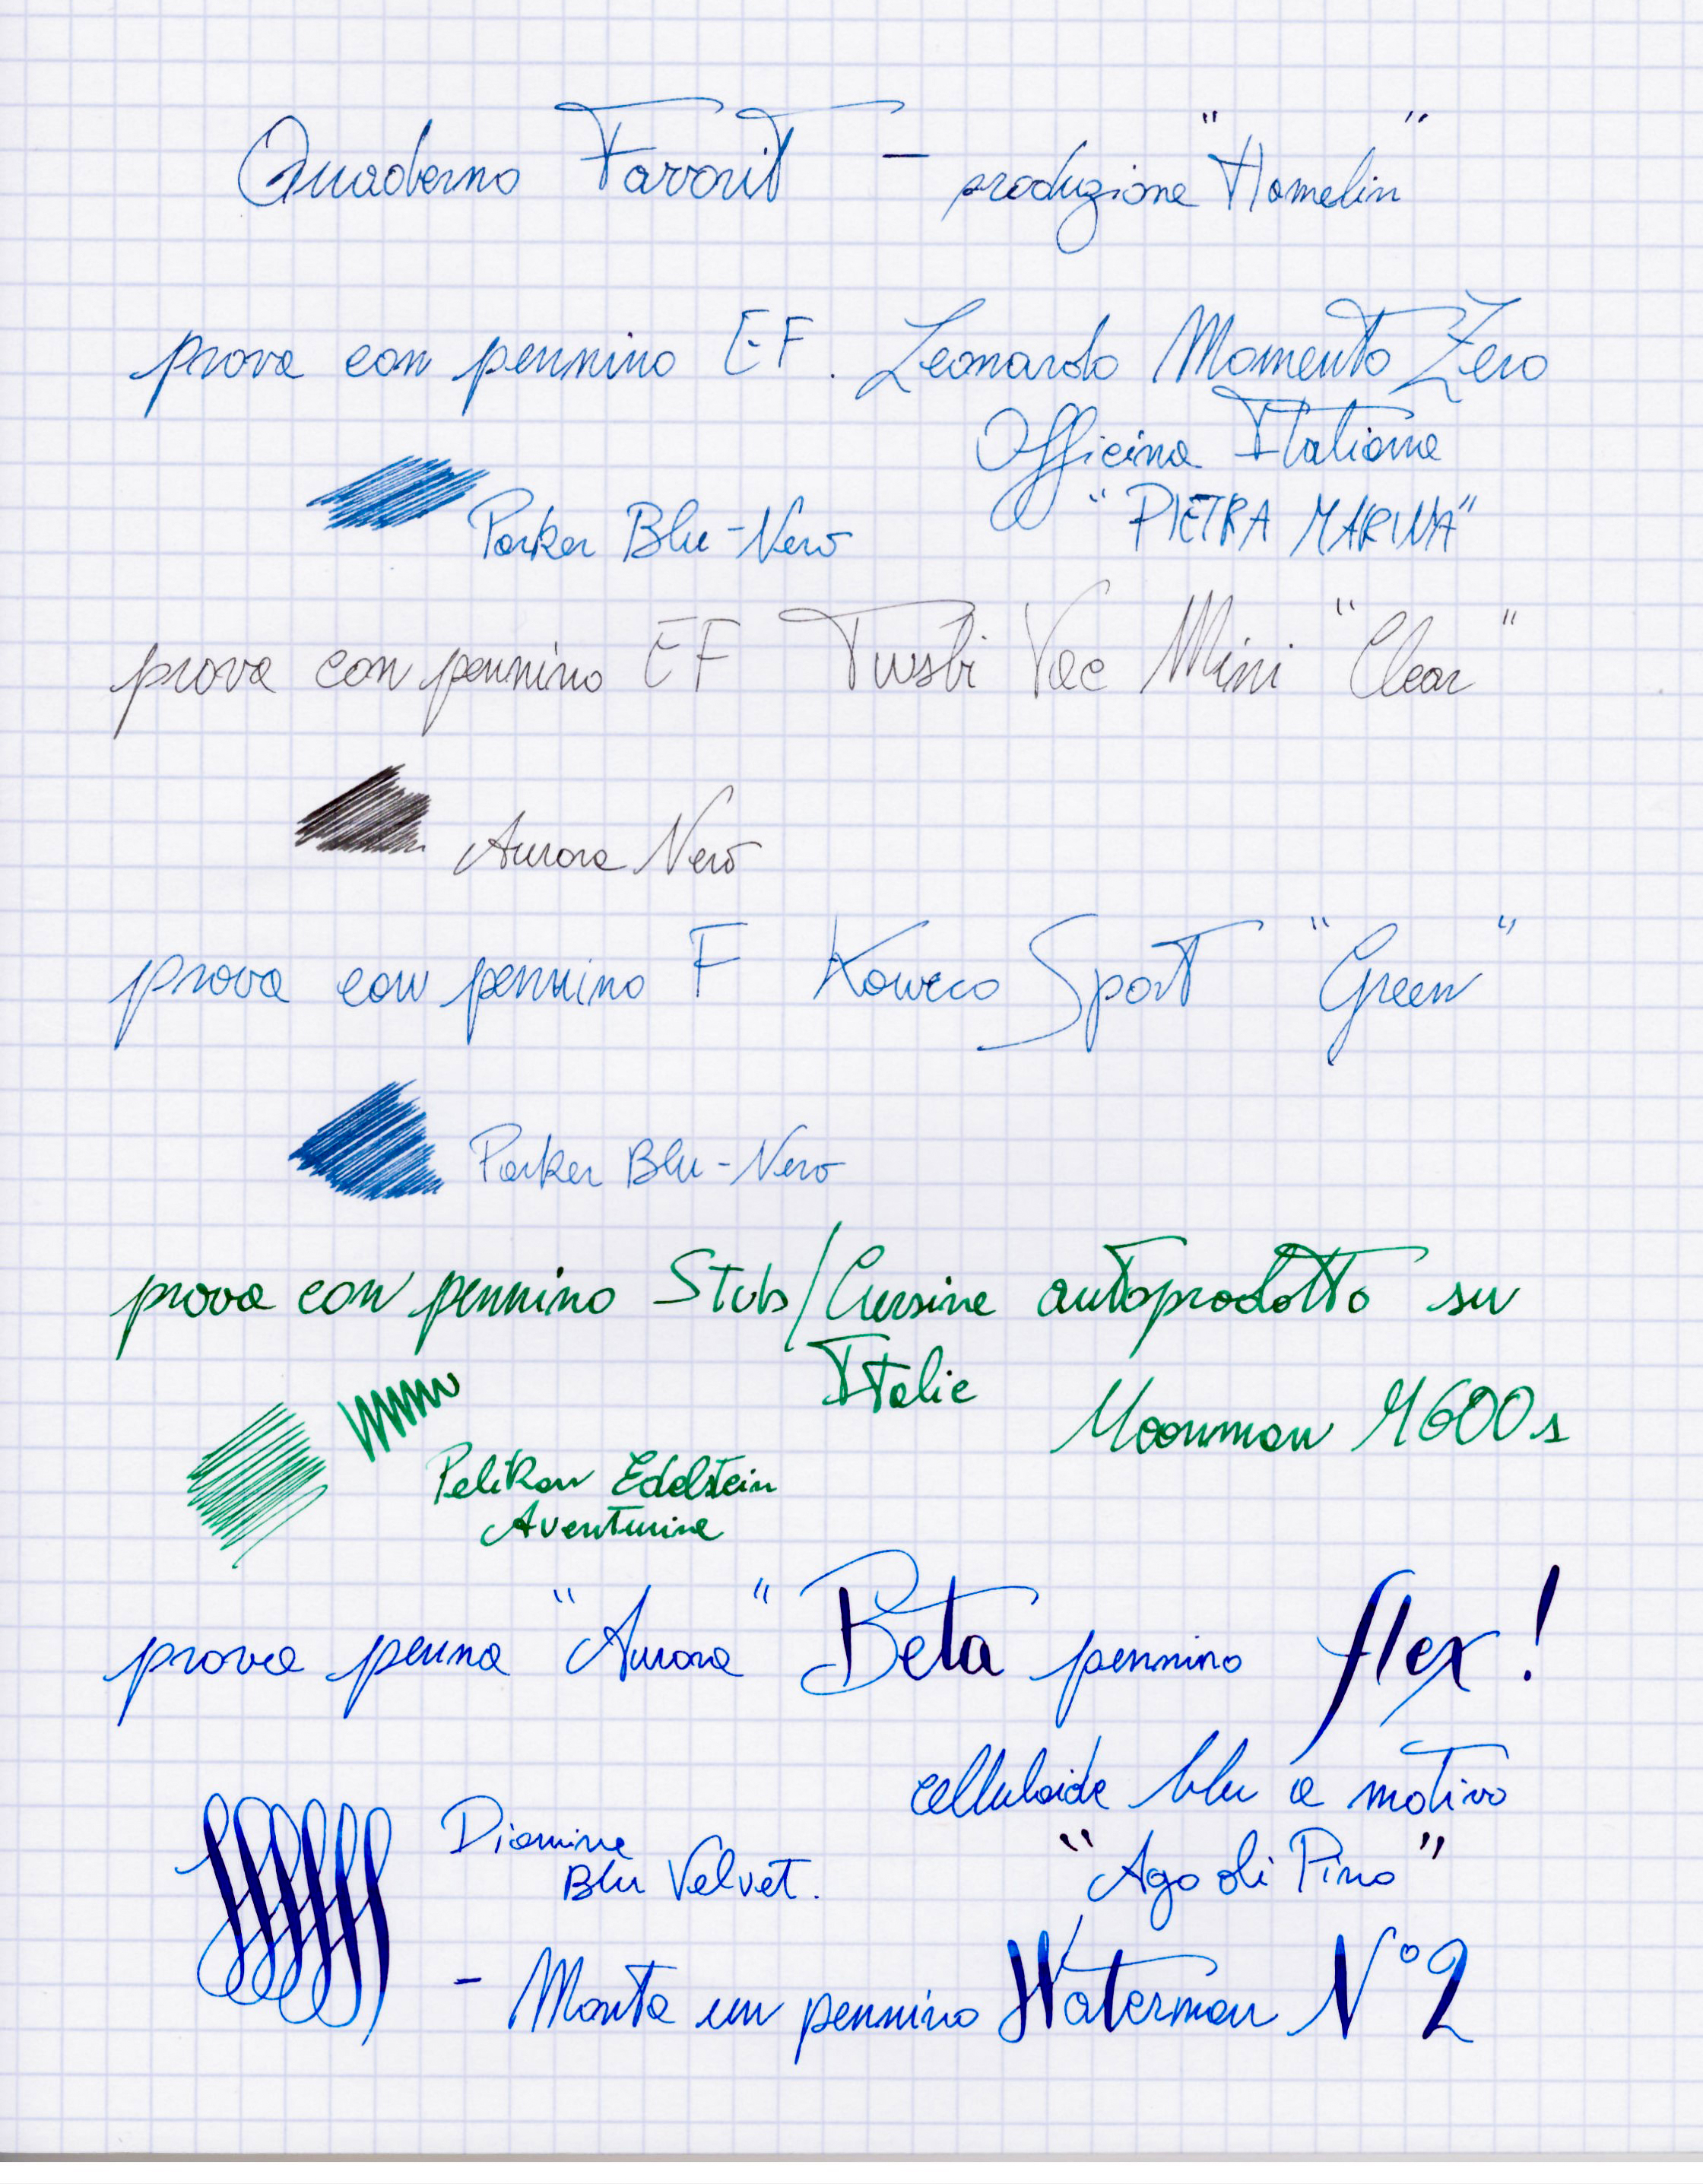 Quaderno Favorit – produzione "Hamelin"
prova con pennino EF. Leonardo Momento Zero
Officina Italiana
"PIETRA MARINA"
Parker Blu-Nero
prova con pennino EF Twsbi Vac Mini "Clear"
Aurora Nero
prova con pennino F Kaweco Sport "Green"
Parker Blu-Nero
prova con pennino Stub/Cursive autoprodotto su
Italic
Moonman M600s
Pelikan Edelstein
Aventurine
prova penna "Aurora" Beta pennino flex!
celluloide blu a motivo
"Ago di Pino"
Diamine
Blu Velvet.
- Monta un pennino Waterman N°2